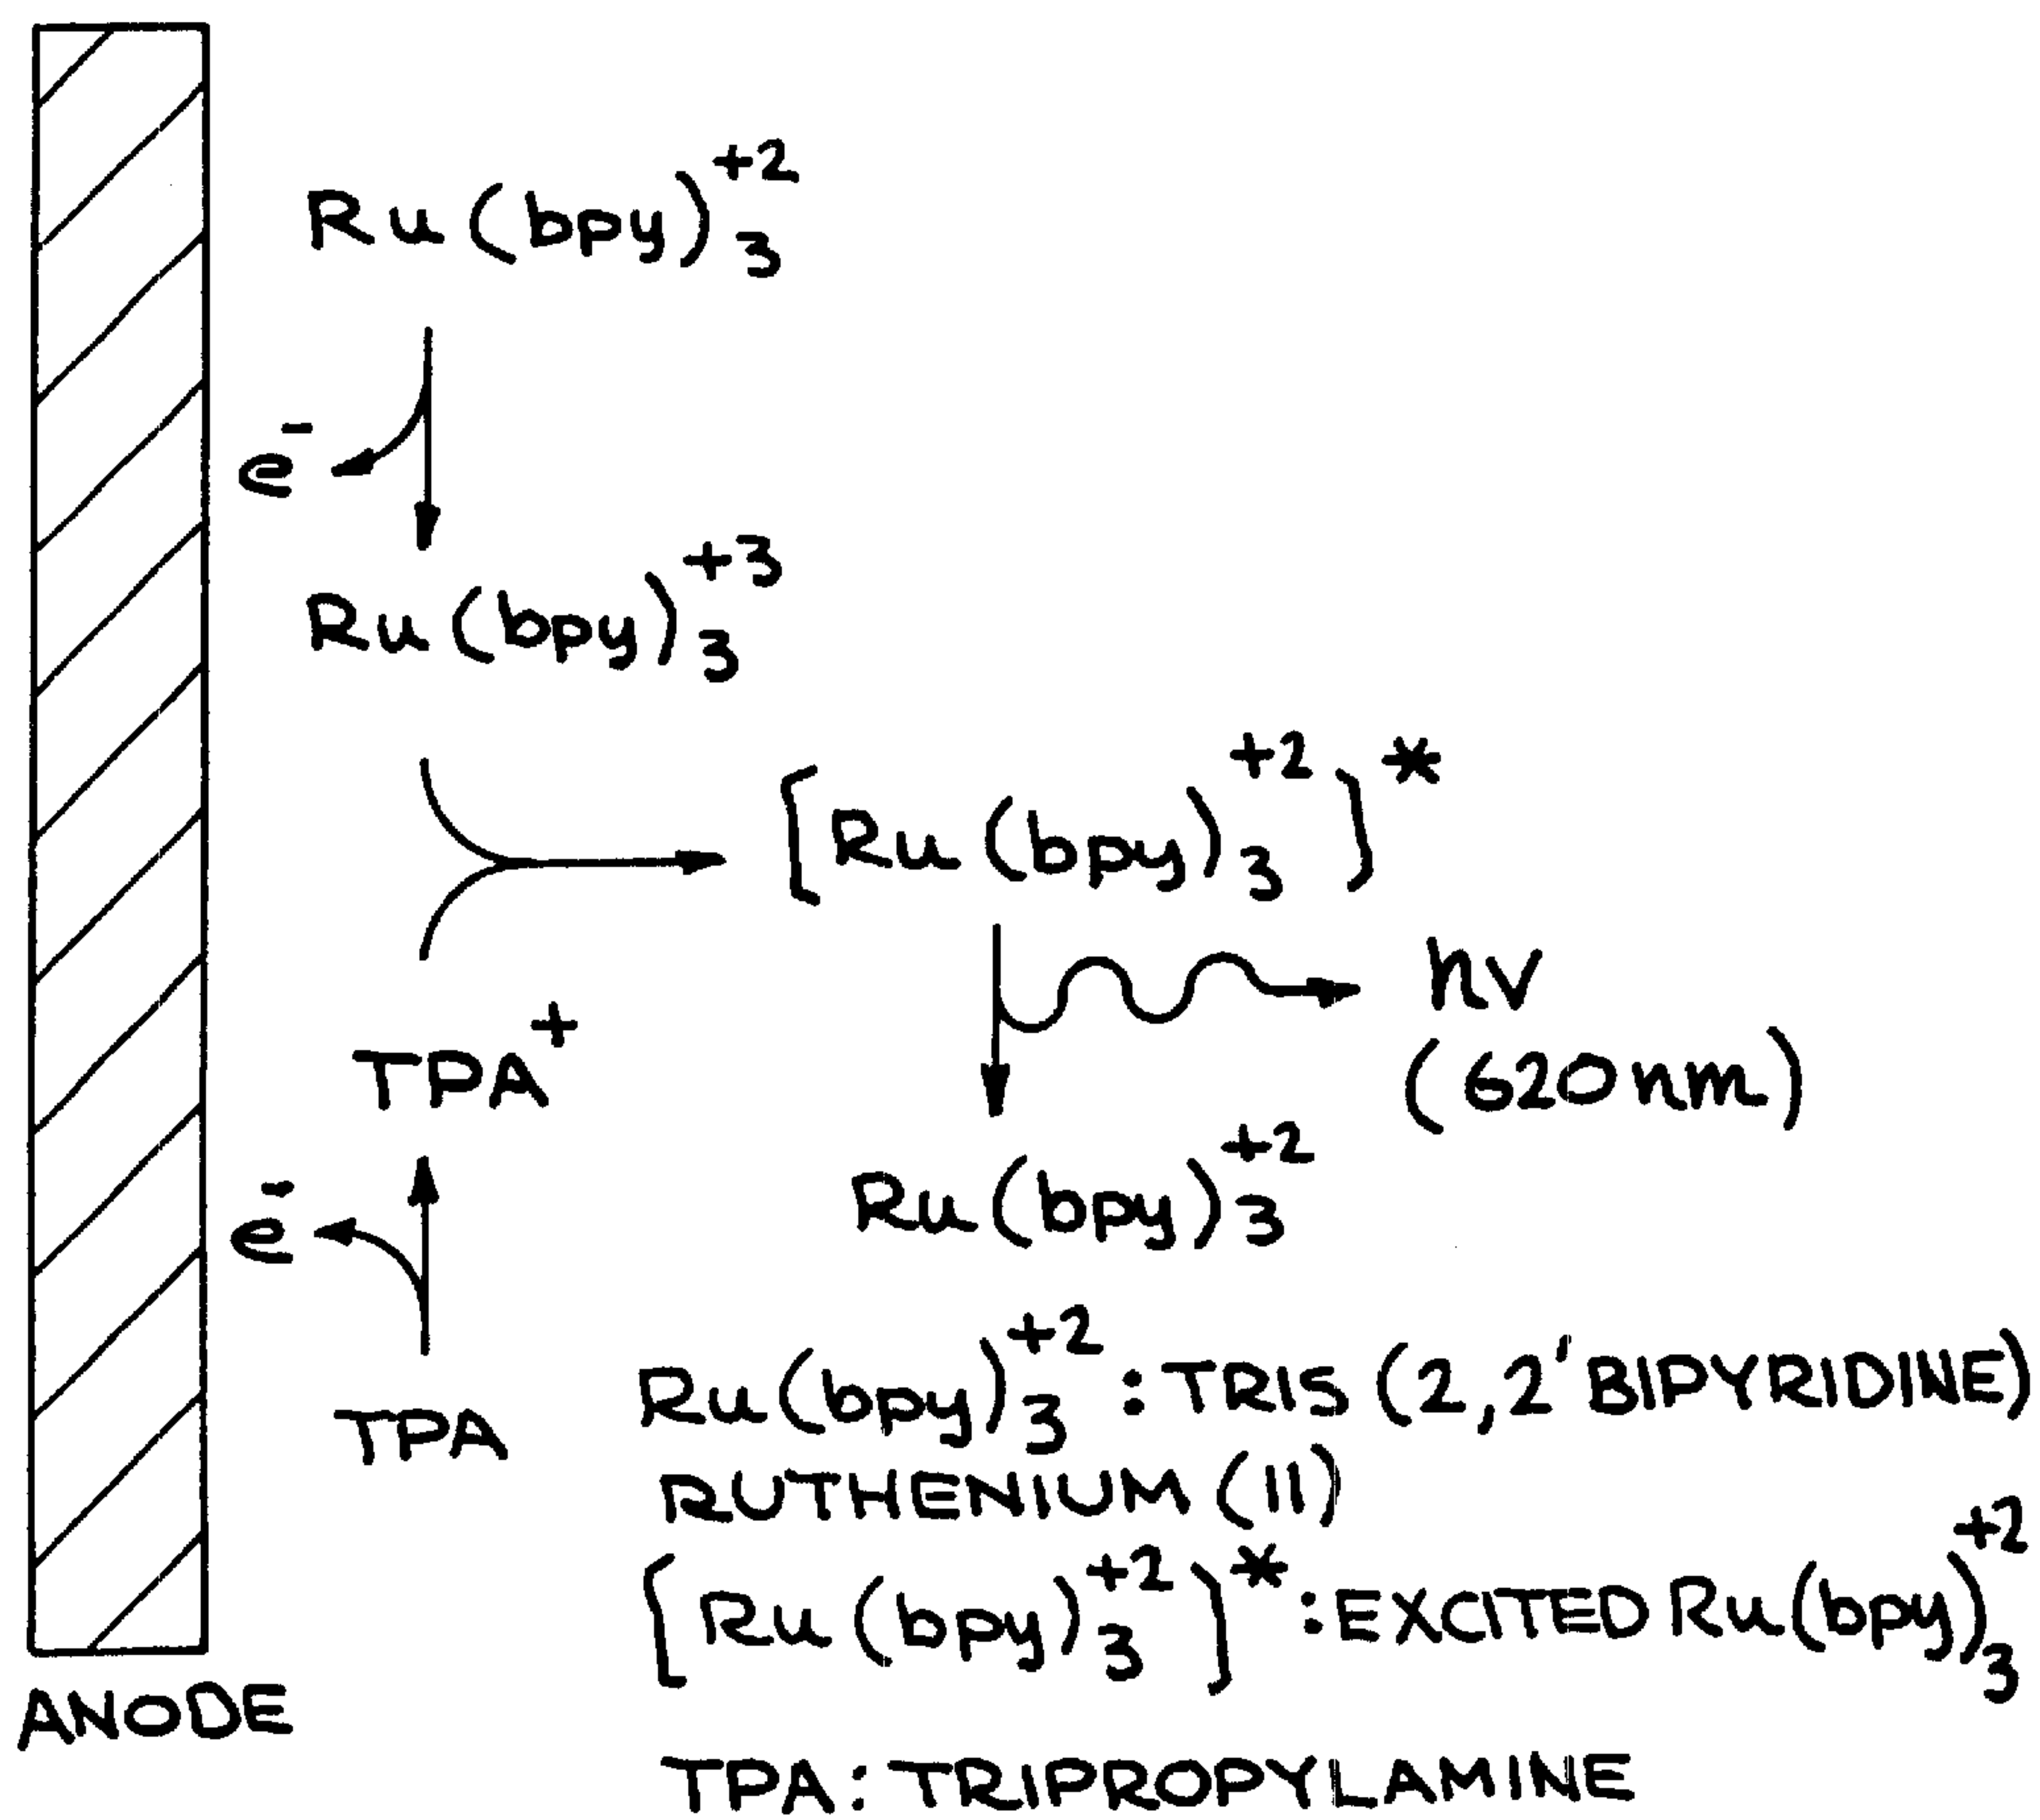 Ru(bpy)₃⁺²
e⁻
Ru(bpy)₃⁺³
[Ru(bpy)₃⁺²]*
hν
(620nm)
TPA⁺
Ru(bpy)₃⁺²
e⁻
TPA
Ru(bpy)₃⁺² : TRIS (2,2' BIPYRIDINE)
RUTHENIUM (II)
[Ru(bpy)₃⁺²]* : EXCITED Ru(bpy)₃⁺²
ANODE
TPA : TRIPROPYLAMINE